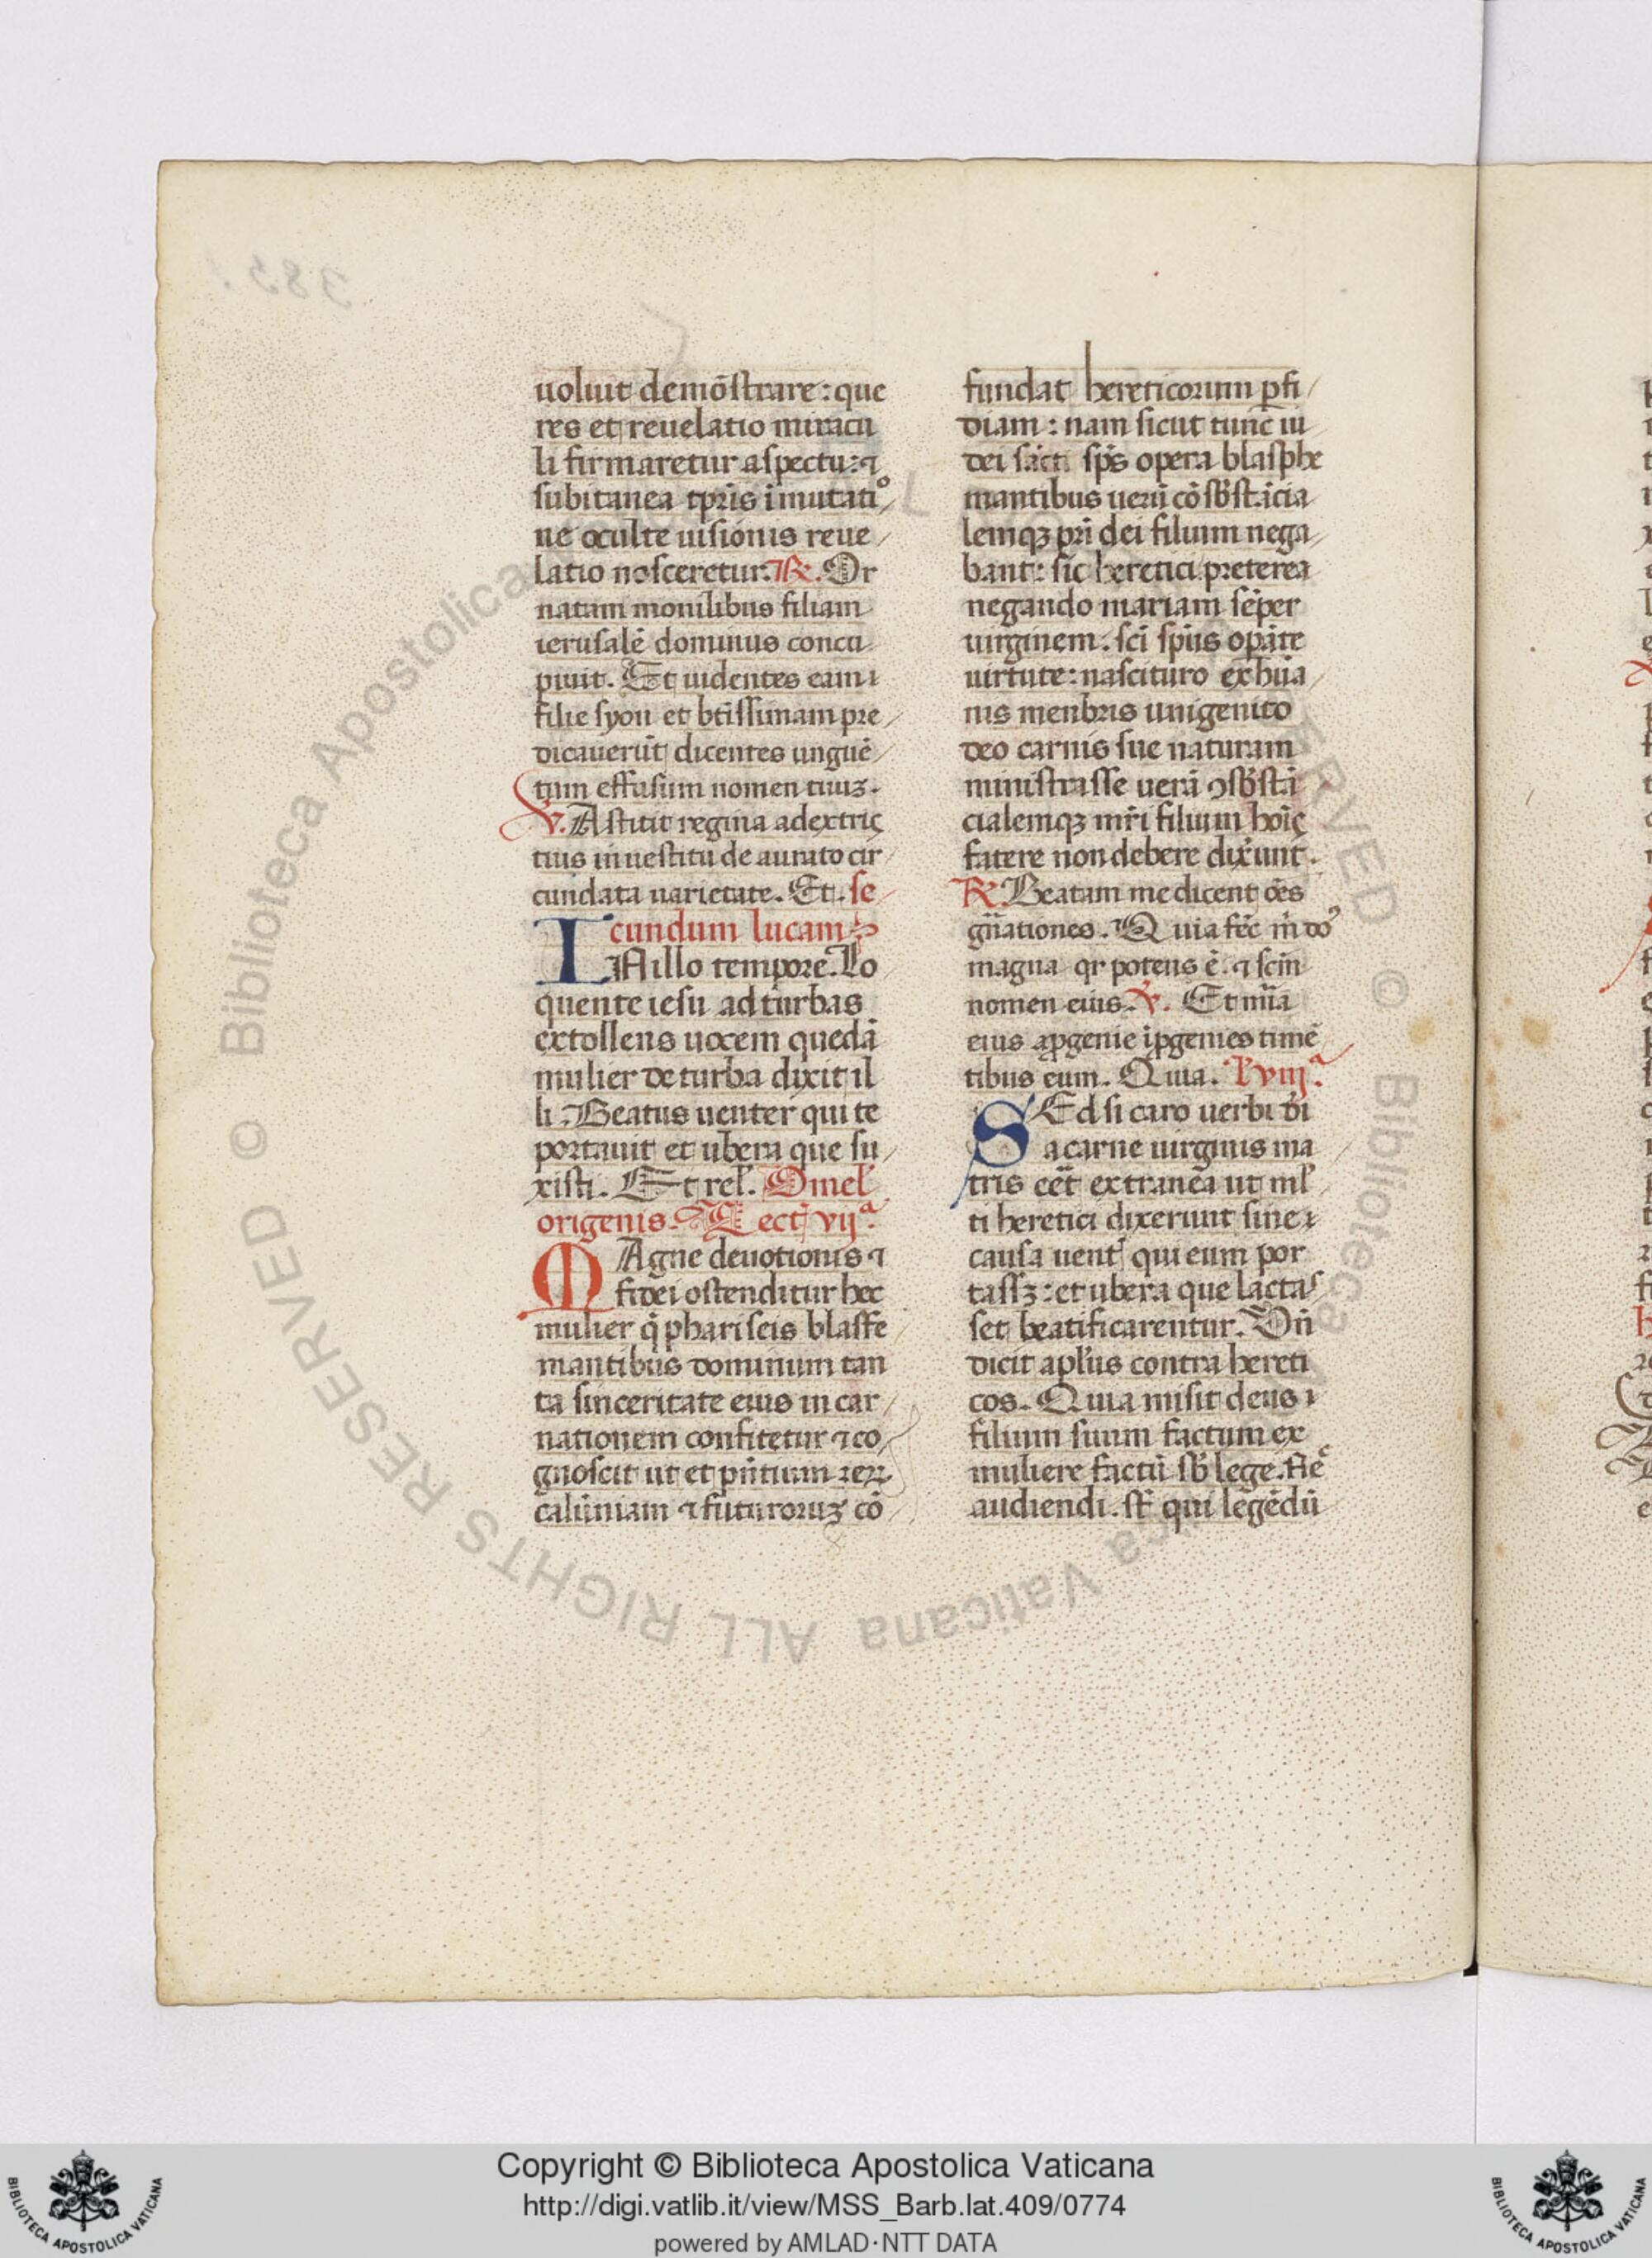 uoluit demōstrare : que
res et reuelatio miracu
li firmaretur aspectu : ⁊
subitanea tp̄ris īmutatiº
ne oculte uisionis reue
latio nosceretur. ℟. Or
natam monilibus filiam
ierusalē dominus concu
piuit. Et uidentes eam
filie syon et btīssimam pre
dicauerūt dicentes unguē
tum effusum nomen tuuꝫ.
℣. Astitit regina adextris
tuis in uestitu de aurato cir
cundata uarietate. Et. se
cundum lucam
IN illo tempore. Lo
quente iesu ad turbas
extollens uocem quedā
mulier de turba dixit il
li. Beatus uenter qui te
portauit et ubera que su
xisti. Et rel'. Omel'
origenis. Lect' vijª.
MAgne deuotionis ⁊
fidei ostenditur hec
mulier q̄ phariseis blasfe
mantibus dominum tan
ta sinceritate eius in car
nationem confitetur ⁊ co
gnoscit ut et pn̄tium
calūniam ⁊ futuroruꝫ cō
fundat hereticorum ꝑfi
diam : nam sicut tunc iu
dei sācti sp̄s opera blasphe
mantibus uerū cōsb̄stācia
lemqꝫ pr̄i dei filium nega
bant : sic heretici preterea
negando mariam sēper
uirginem. sc̄i sp̄us opāte
uirtute : nascituro ex hūa
nis menbris unigenito
deo carnis sue naturam
ministrasse uerā ꝯsb̄stā
cialemqꝫ mr̄i filium hoīs
fatere non debere dixūnt.
℟. Beatam me dicent oēs
gn̄ationes. Quia fēc m̄ do᷒
magna qr potens ē. ⁊ scm̄
nomen eius. ℣. Et mīa
eius aꝓgenie īꝓgenies timē
tibus eum. Quia. L' viijª.
SEd si caro uerbi dī
a carne uirginis ma
tris cēt extranea ut ml'
ti heretici dixerunt sine
causa uent' qui eum por
tassꝫ : et ubera que lactas
set beatificarentur. Vn̄
dicit apl'us contra hereti
cos. Quia misit deus
filium suum factum ex
muliere factū sb̄ lege. Ne
audiendi. st̄ qui legēdū
Copyright © Biblioteca Apostolica Vaticana
http://digi.vatlib.it/view/MSS_Barb.lat.409/0774
powered by AMLAD·NTT DATA